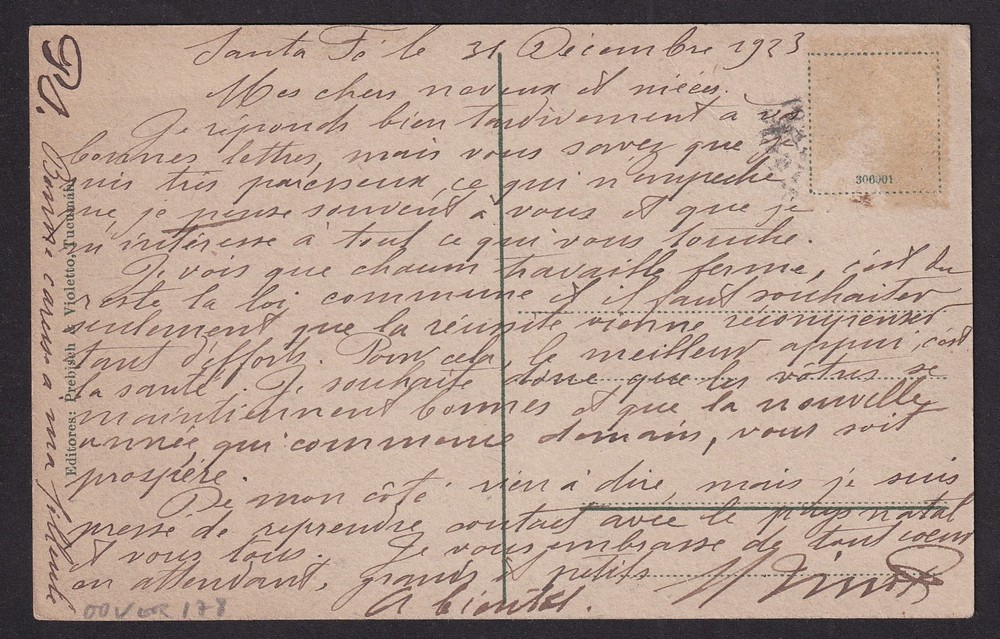 Santa Fé le 31 Décembre 1923
Mes chers neveux et nièces.
Je réponds bien tardivement à vos
bonnes lettres, mais vous savez que je
suis très paresseux ce qui n'empêche
que je pense souvent à vous et que je
m'intéresse à tout ce qui vous touche.
Je vois que chacun travaille ferme, c'est du
reste la loi commune et il faut souhaiter
seulement que la réussite vienne récompenser
tant d'efforts. Pour cela, le meilleur appui, c'est
la santé. Je souhaite donc que les vôtres se
maintiennent bonnes et que la nouvelle
année qui commence demain, vous soit
prospère.
De mon côté rien à dire, mais je suis
pressé de reprendre contact avec le pays natal
et vous tous. Je vous embrasse de tout coeur
en attendant, grands et petits
A bientôt.
PS. Bonne caresse à ma filleule
Editores: Prebisch & Violetto, Tucumán
306001
178